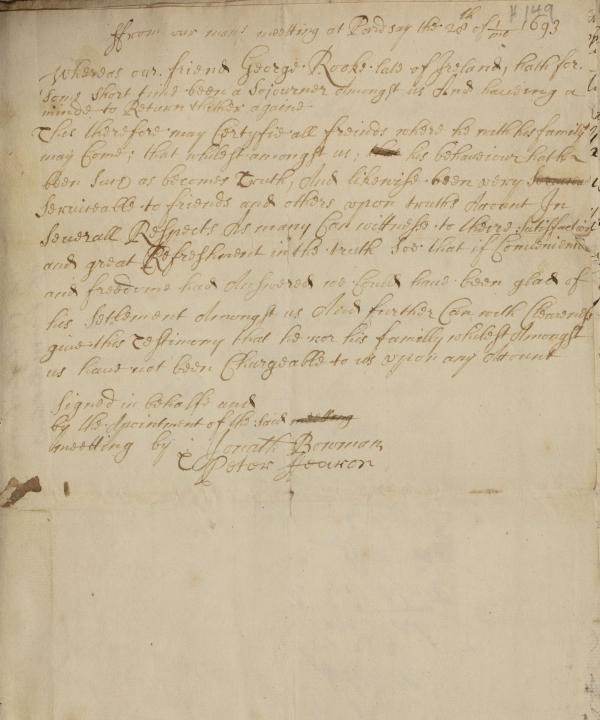 # 149
ffrom our mans meetting at Pardsay the 28th of 1 mo 1693
Whereas our friend George Rooke late of Ireland, hath for
some short time been a Sojourner Amongst us And haveing a
minde to Return thither againe
This therefore may Certyfie all freinds where he with his family
may Come; that whilest amongst us; his behaviour hath
been Such as becomes Truth, And likewise been very
Serviceable to friends and others upon truths Acount In
Severall Respects As many Can wittnesse to theire satisfaction
and great Refreshment in the truth Soe that if Convenience
and freedome had Answered we Could have been glad of
his Setlement Amongst us And further Can with Clearness
give this Testimony that he nor his familly whilest Amongst
us have not been Chargeable to us upon any Acount
Signed in behalfe and
by the Apointment of the said meetting
meetting by Jonath Bowman
Peter Fearon